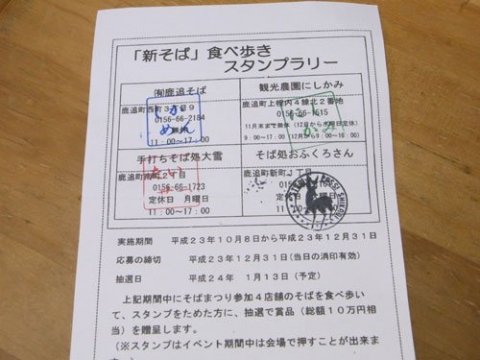 「新そば」食べ歩き
スタンプラリー
㈲鹿追そば
鹿追町西町3丁目9
0156-66-2184
11:00~17:00
観光農園にしかみ
鹿追町上幌内4線北2番地
0156-66-1615
手打ちそば処大雪
鹿追町南町2丁目
0156-66-1723
定休日 月曜日
11:00~17:00
そば処おふくろさん
鹿追町新町1丁目
実施期間 平成23年10月8日から平成23年12月31日
応募の締切 平成23年12月31日(当日の消印有効)
抽選日 平成24年 1月13日(予定)
上記期間中にそばまつり参加4店舗のそばを食べ歩い
て、スタンプをためた方に、抽選で賞品(総額10万円相
当)を贈呈します。
(※スタンプはイベント期間中は会場で押すことが出来ま
す。)